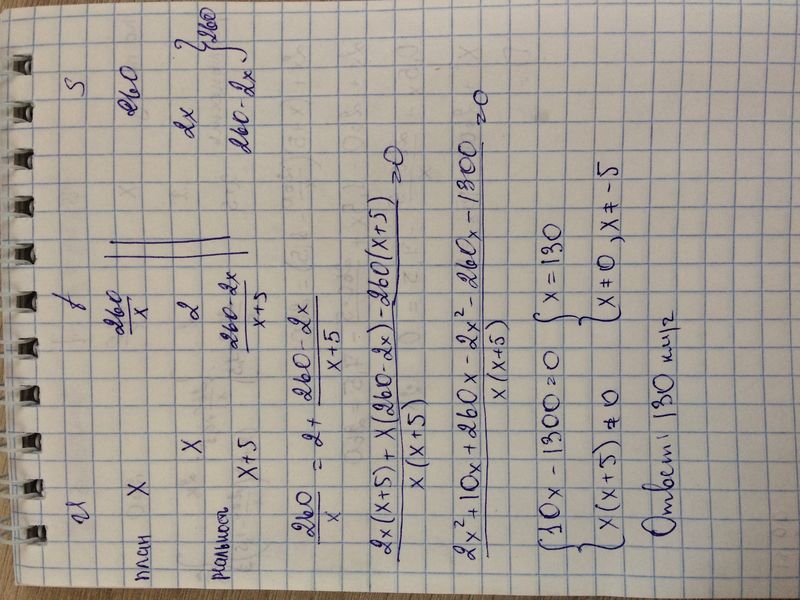 v t S
план x 260/x 260
реальность x 2 2x
x+5 (260-2x)/(x+5) 260-2x } 260
260/x = 2 + (260-2x)/(x+5)
(2x(x+5) + x(260-2x) - 260(x+5))/(x(x+5)) = 0
(2x²+10x+260x-2x²-260x-1300)/(x(x+5)) = 0
{ 10x-1300=0 { x=130
{ x(x+5)≠0 { x≠0, x≠-5
Ответ: 130 км/г